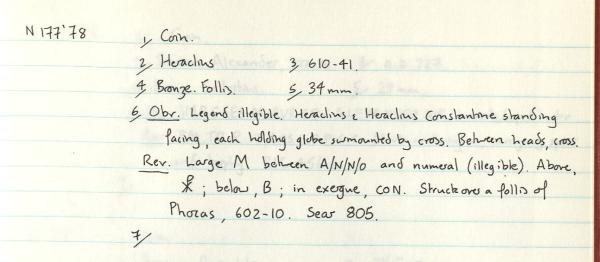 N 177'78
1/ Coin.
2/ Heraclius 3/ 610-41.
4/ Bronze. Follis. 5/ 34mm.
6/ Obv. Legend illegible. Heraclius & Heraclius Constantine standing
facing, each holding globe surmounted by cross. Between heads, cross.
Rev. Large M between A/N/N/O and numeral (illegible). Above,
☧; below, B; in exergue, CON. Struck over a follis of
Phocas, 602-10. Sear 805.
7/